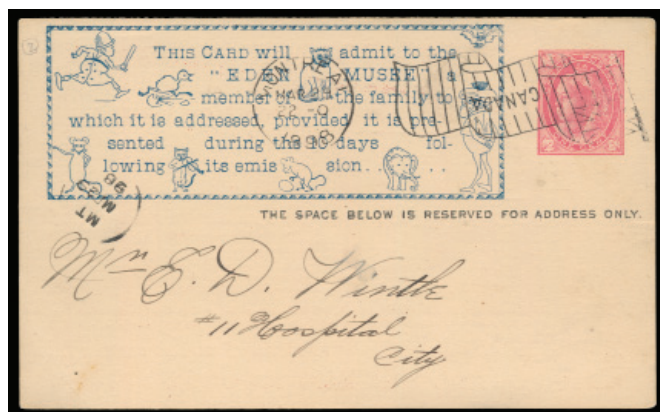 THIS CARD will admit to the
"EDEN MUSEE," a
member of the family to
which it is addressed, provided it is pre-
sented during the 10 days fol-
lowing its emis sion....
MONTREAL
MAR 22
1898
CANADA
MT
98
THE SPACE BELOW IS RESERVED FOR ADDRESS ONLY.
Mr E. D. Wintle
#11 Hospital
City